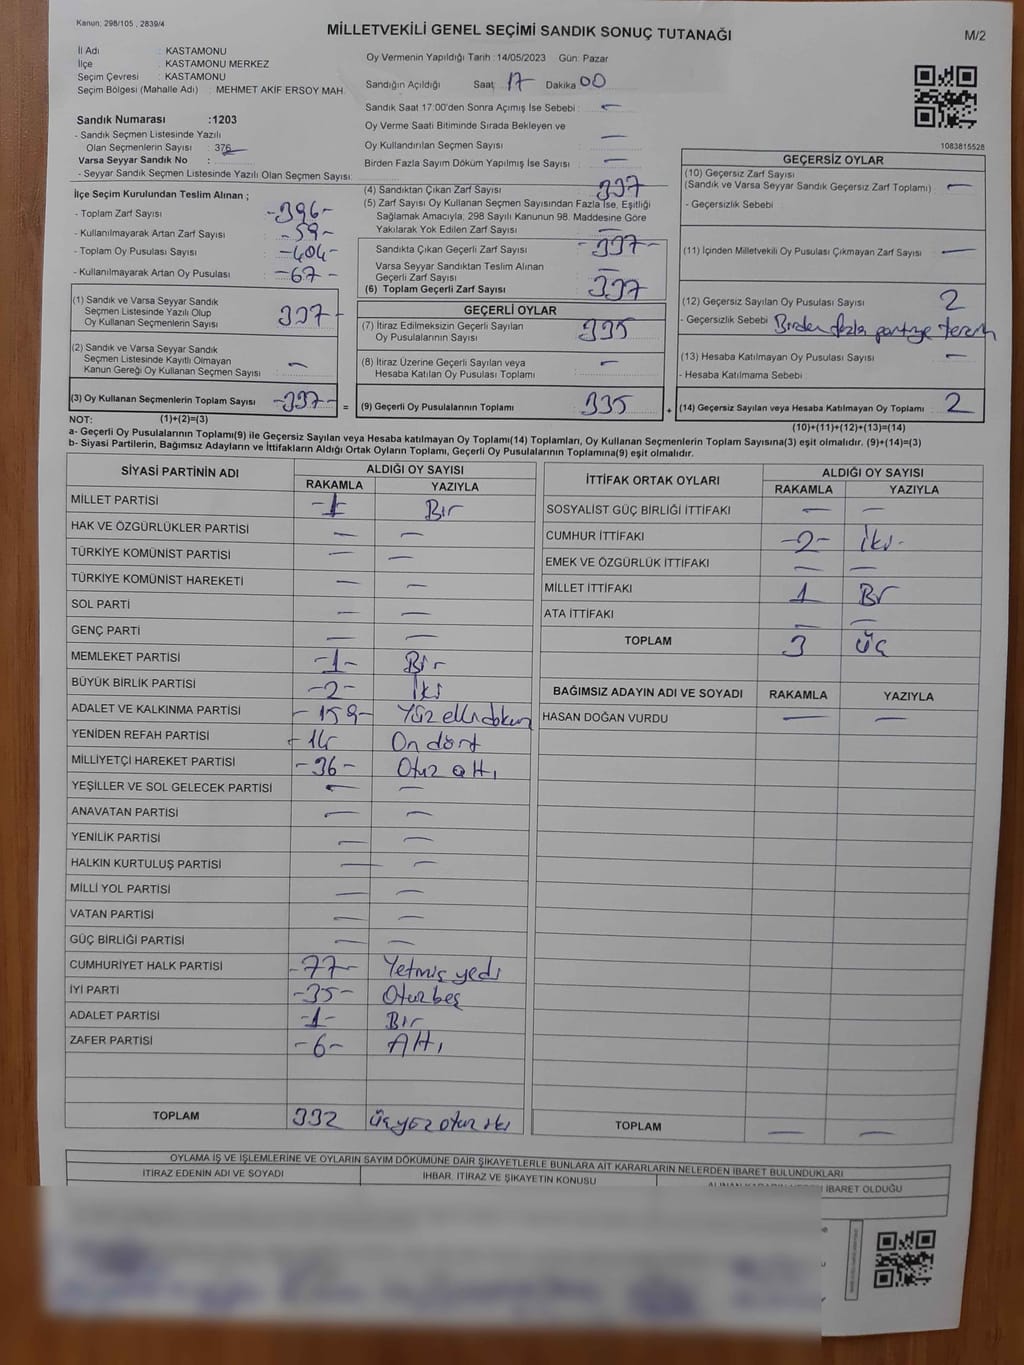 Kanun; 298/105 , 2839/4
MİLLETVEKİLİ GENEL SEÇİMİ SANDIK SONUÇ TUTANAĞI
M/2
İl Adı : KASTAMONU
İlçe : KASTAMONU MERKEZ
Seçim Çevresi : KASTAMONU
Seçim Bölgesi (Mahalle Adı) : MEHMET AKİF ERSOY MAH.
Oy Vermenin Yapıldığı Tarih : 14/05/2023 Gün: Pazar
Sandığın Açıldığı Saat 17 Dakika 00
Sandık Saat 17:00'den Sonra Açımış İse Sebebi : —
Oy Verme Saati Bitiminde Sırada Bekleyen ve
Oy Kullandırılan Seçmen Sayısı : —
Birden Fazla Sayım Döküm Yapılmış İse Sayısı : —
Sandık Numarası :1203
- Sandık Seçmen Listesinde Yazılı
Olan Seçmenlerin Sayısı : 376
Varsa Seyyar Sandık No :
- Seyyar Sandık Seçmen Listesinde Yazılı Olan Seçmen Sayısı:
1083815528
İlçe Seçim Kurulundan Teslim Alınan ;
- Toplam Zarf Sayısı : -396-
- Kullanılmayarak Artan Zarf Sayısı : -59-
- Toplam Oy Pusulası Sayısı : -404-
- Kullanılmayarak Artan Oy Pusulası : -67-
(1) Sandık ve Varsa Seyyar Sandık
Seçmen Listesinde Yazılı Olup
Oy Kullanan Seçmenlerin Sayısı : 337-
(2) Sandık ve Varsa Seyyar Sandık
Seçmen Listesinde Kayıtlı Olmayan
Kanun Gereği Oy Kullanan Seçmen Sayısı : —
(3) Oy Kullanan Seçmenlerin Toplam Sayısı -337- =
(1)+(2)=(3)
(4) Sandıktan Çıkan Zarf Sayısı : 337
(5) Zarf Sayısı Oy Kullanan Seçmen Sayısından Fazla İse, Eşitliği
Sağlamak Amacıyla, 298 Sayılı Kanunun 98. Maddesine Göre
Yakılarak Yok Edilen Zarf Sayısı : —
Sandıkta Çıkan Geçerli Zarf Sayısı : -337-
Varsa Seyyar Sandıktan Teslim Alınan
Geçerli Zarf Sayısı : —
(6) Toplam Geçerli Zarf Sayısı : 337
GEÇERLİ OYLAR
(7) İtiraz Edilmeksizin Geçerli Sayılan
Oy Pusulalarının Sayısı : 335
(8) İtiraz Üzerine Geçerli Sayılan veya
Hesaba Katılan Oy Pusulası Toplamı : —
(9) Geçerli Oy Pusulalarının Toplamı : 335 +
GEÇERSİZ OYLAR
(10) Geçersiz Zarf Sayısı
(Sandık ve Varsa Seyyar Sandık Geçersiz Zarf Toplamı) : —
- Geçersizlik Sebebi :
(11) İçinden Milletvekili Oy Pusulası Çıkmayan Zarf Sayısı : —
(12) Geçersiz Sayılan Oy Pusulası Sayısı : 2
- Geçersizlik Sebebi : Birden fazla partiye
(13) Hesaba Katılmayan Oy Pusulası Sayısı : —
- Hesaba Katılmama Sebebi :
(14) Geçersiz Sayılan veya Hesaba Katılmayan Oy Toplamı : 2
(10)+(11)+(12)+(13)=(14)
NOT:
a- Geçerli Oy Pusulalarının Toplamı(9) ile Geçersiz Sayılan veya Hesaba katılmayan Oy Toplamı(14) Toplamları, Oy Kullanan Seçmenlerin Toplam Sayısına(3) eşit olmalıdır. (9)+(14)=(3)
b- Siyasi Partilerin, Bağımsız Adayların ve İttifakların Aldığı Ortak Oyların Toplamı, Geçerli Oy Pusulalarının Toplamına(9) eşit olmalıdır.
SİYASİ PARTİNİN ADI ALDIĞI OY SAYISI
RAKAMLA YAZIYLA
MİLLET PARTİSİ -1- Bir
HAK VE ÖZGÜRLÜKLER PARTİSİ — —
TÜRKİYE KOMÜNİST PARTİSİ — —
TÜRKİYE KOMÜNİST HAREKETİ — —
SOL PARTİ — —
GENÇ PARTİ — —
MEMLEKET PARTİSİ -1- Bir
BÜYÜK BİRLİK PARTİSİ -2- İki
ADALET VE KALKINMA PARTİSİ -159- Yüz elli dokuz
YENİDEN REFAH PARTİSİ -14 On dört
MİLLİYETÇİ HAREKET PARTİSİ -36- Otuz altı
YEŞİLLER VE SOL GELECEK PARTİSİ — —
ANAVATAN PARTİSİ — —
YENİLİK PARTİSİ — —
HALKIN KURTULUŞ PARTİSİ — —
MİLLİ YOL PARTİSİ — —
VATAN PARTİSİ — —
GÜÇ BİRLİĞİ PARTİSİ — —
CUMHURİYET HALK PARTİSİ -77- Yetmiş yedi
İYİ PARTİ -35- Otuz beş
ADALET PARTİSİ -1- Bir
ZAFER PARTİSİ -6- Altı
TOPLAM 332 Üçyüz otuz iki
İTTİFAK ORTAK OYLARI ALDIĞI OY SAYISI
RAKAMLA YAZIYLA
SOSYALİST GÜÇ BİRLİĞİ İTTİFAKI — —
CUMHUR İTTİFAKI -2- İki-
EMEK VE ÖZGÜRLÜK İTTİFAKI — —
MİLLET İTTİFAKI 1 Bir
ATA İTTİFAKI — —
TOPLAM 3 Üç
BAĞIMSIZ ADAYIN ADI VE SOYADI RAKAMLA YAZIYLA
HASAN DOĞAN VURDU — —
TOPLAM — —
OYLAMA İŞ VE İŞLEMLERİNE VE OYLARIN SAYIM DÖKÜMÜNE DAİR ŞİKAYETLERLE BUNLARA AİT KARARLARIN NELERDEN İBARET BULUNDUKLARI
İTİRAZ EDENİN ADI VE SOYADI İHBAR, İTİRAZ VE ŞİKAYETİN KONUSU İBARET OLDUĞU